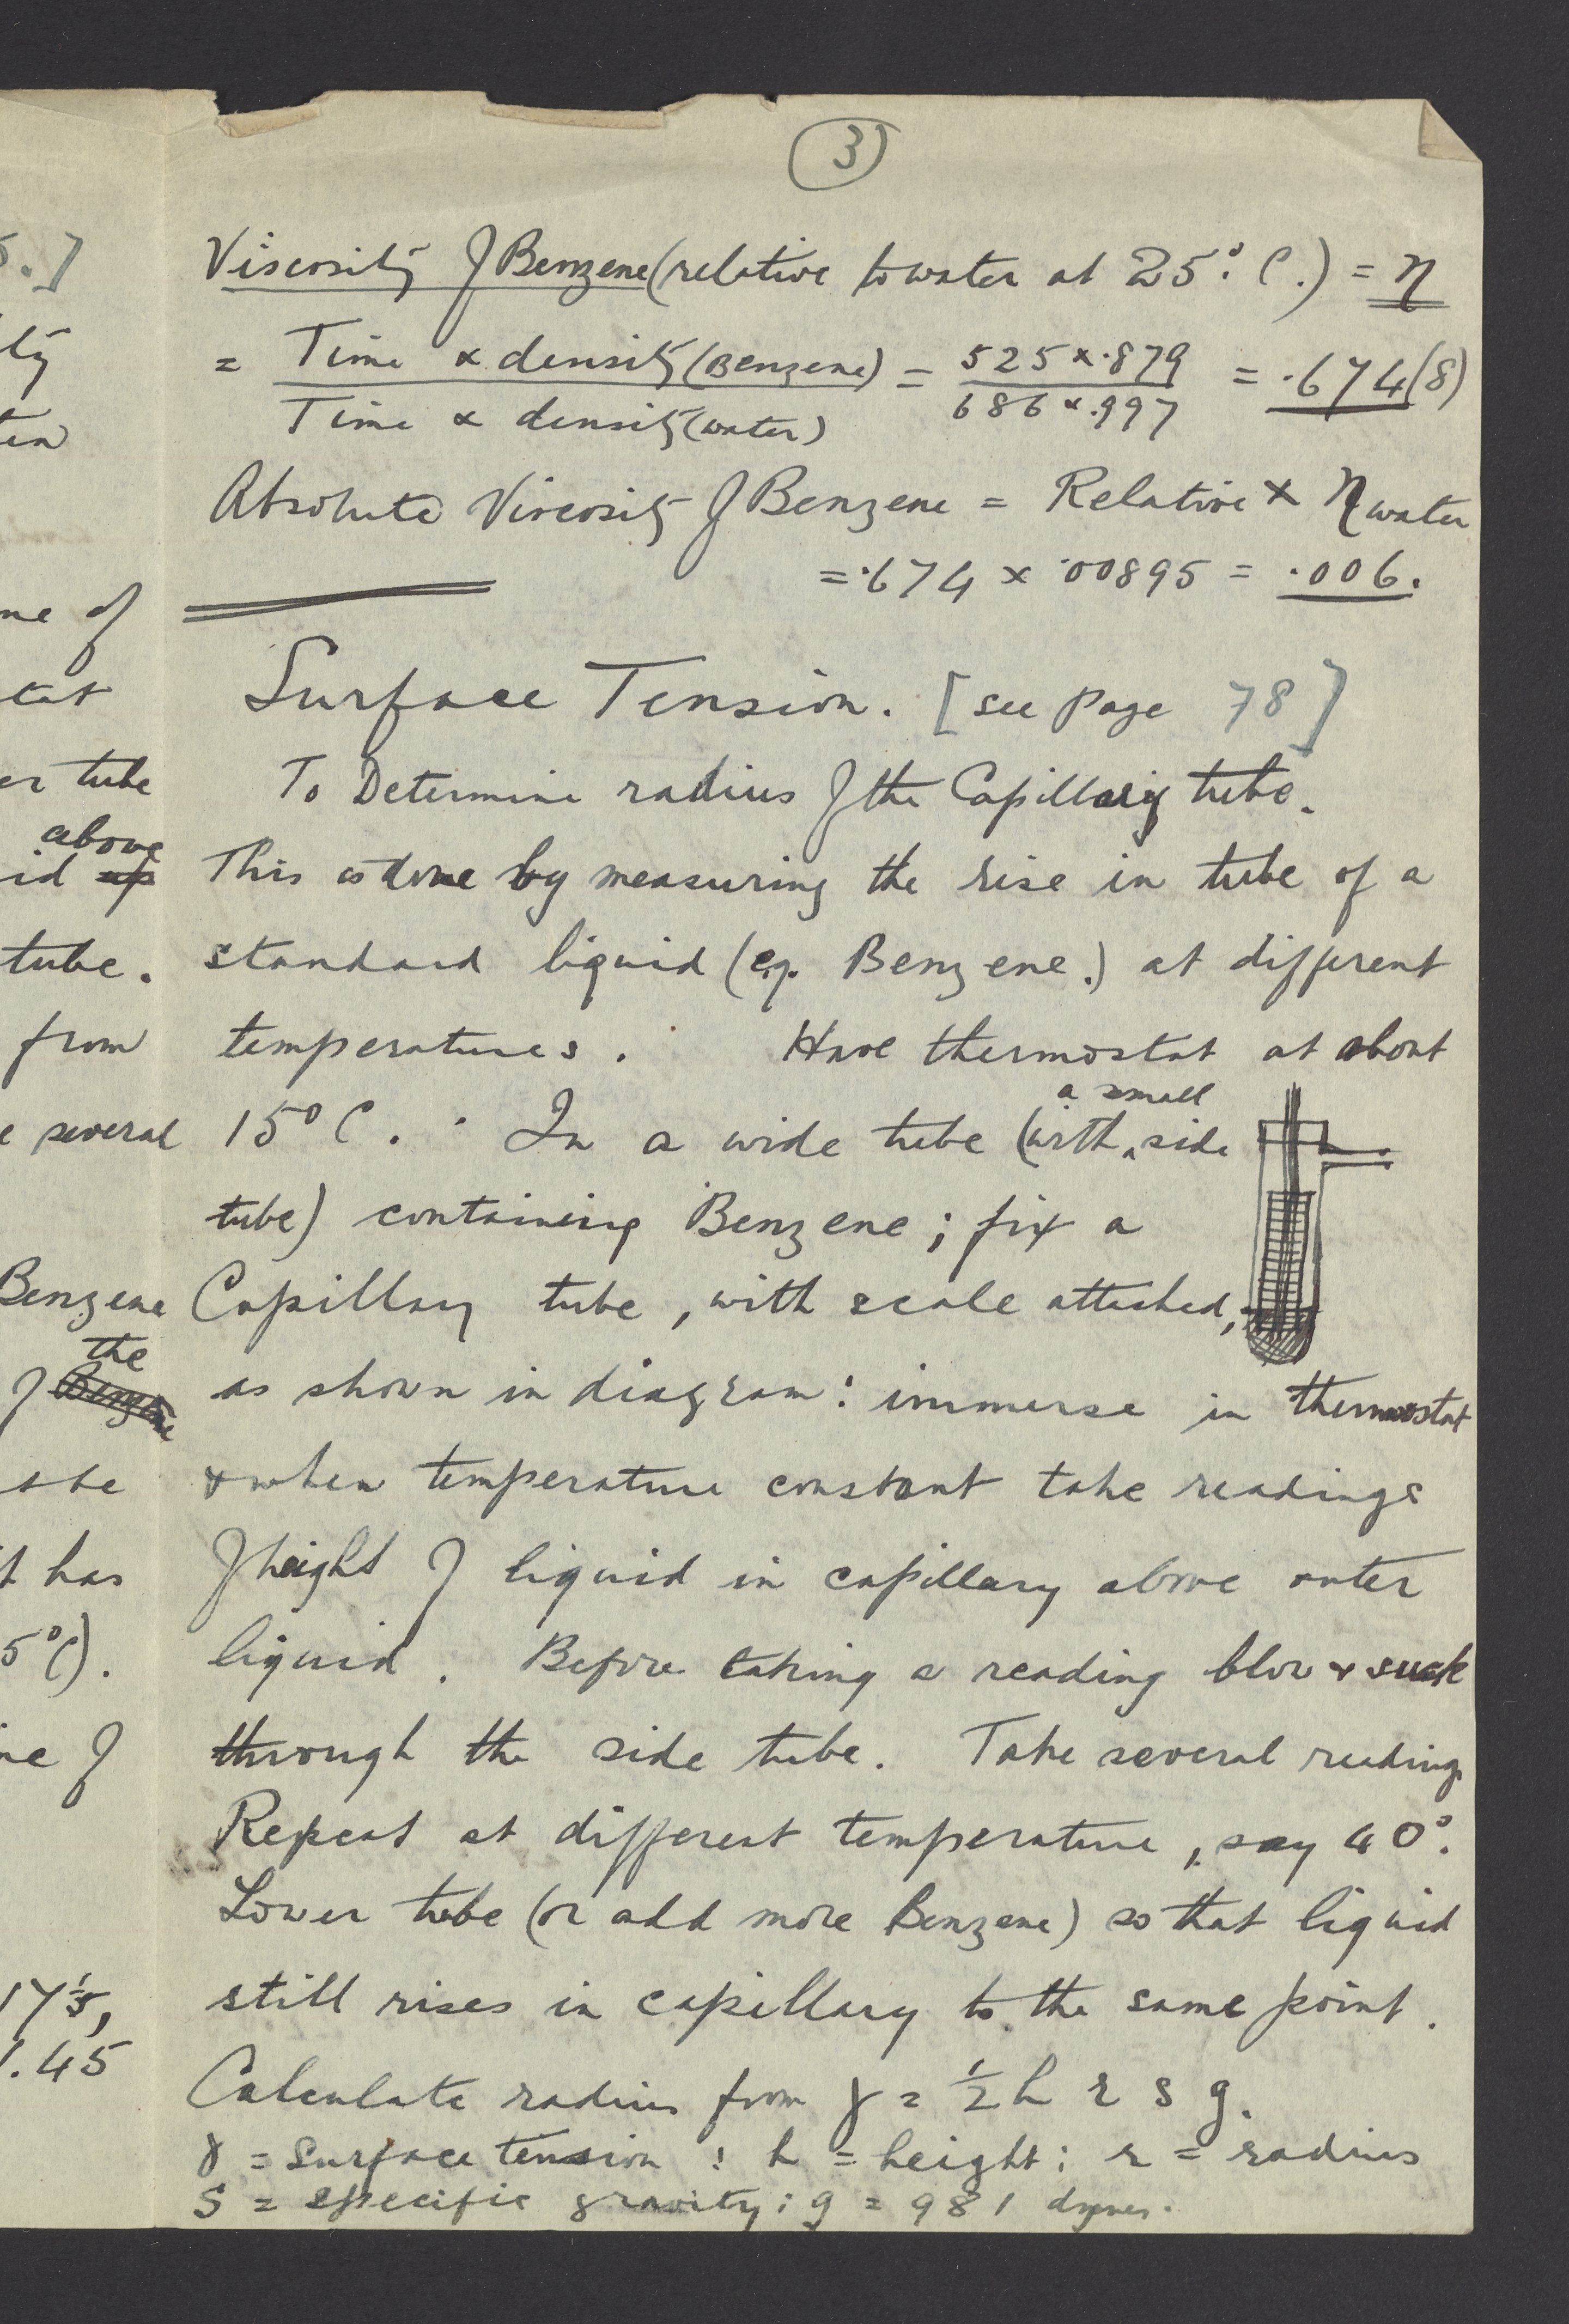 3
Viscosity of Benzene (relative to water at 25°. C.) = η
= Time x density (Benzene) = 525 x .879 = .674(8)
Time x density (water) 686 x .997
Absolute Viscosity of Benzene = Relative x η water
= .674 x .00895 = .006.
Surface Tension. [see page 78]
To Determine radius of the Capillary tube.
This is done by measuring the rise in tube of a
standard liquid (e.g. Benzene.) at different
temperatures. Have thermostat at about
a small
15°C. In a wide tube (with ‸ side
tube) containing Benzene; fix a
Capillary tube, with scale attached,
as shown in diagram: immerse in thermostat
& when temperature constant take readings
of height of liquid in capillary above outer
liquid. Before taking a reading blow & suck
through the side tube. Take several readings
Repeat at different temperature, say 40°.
Lower tube (or add more Benzene) so that liquid
still rises in capillary to the same point.
Calculate radius from γ = ½ h r s g.
γ = surface tension : h = height; r = radius
S = specific gravity; g = 981 dynes.
5.]
me of
er tube
above
id up
tube.
from
e several
Benzene
the
of Benzene
t has
5°C).
ne of
17.5,
1.45